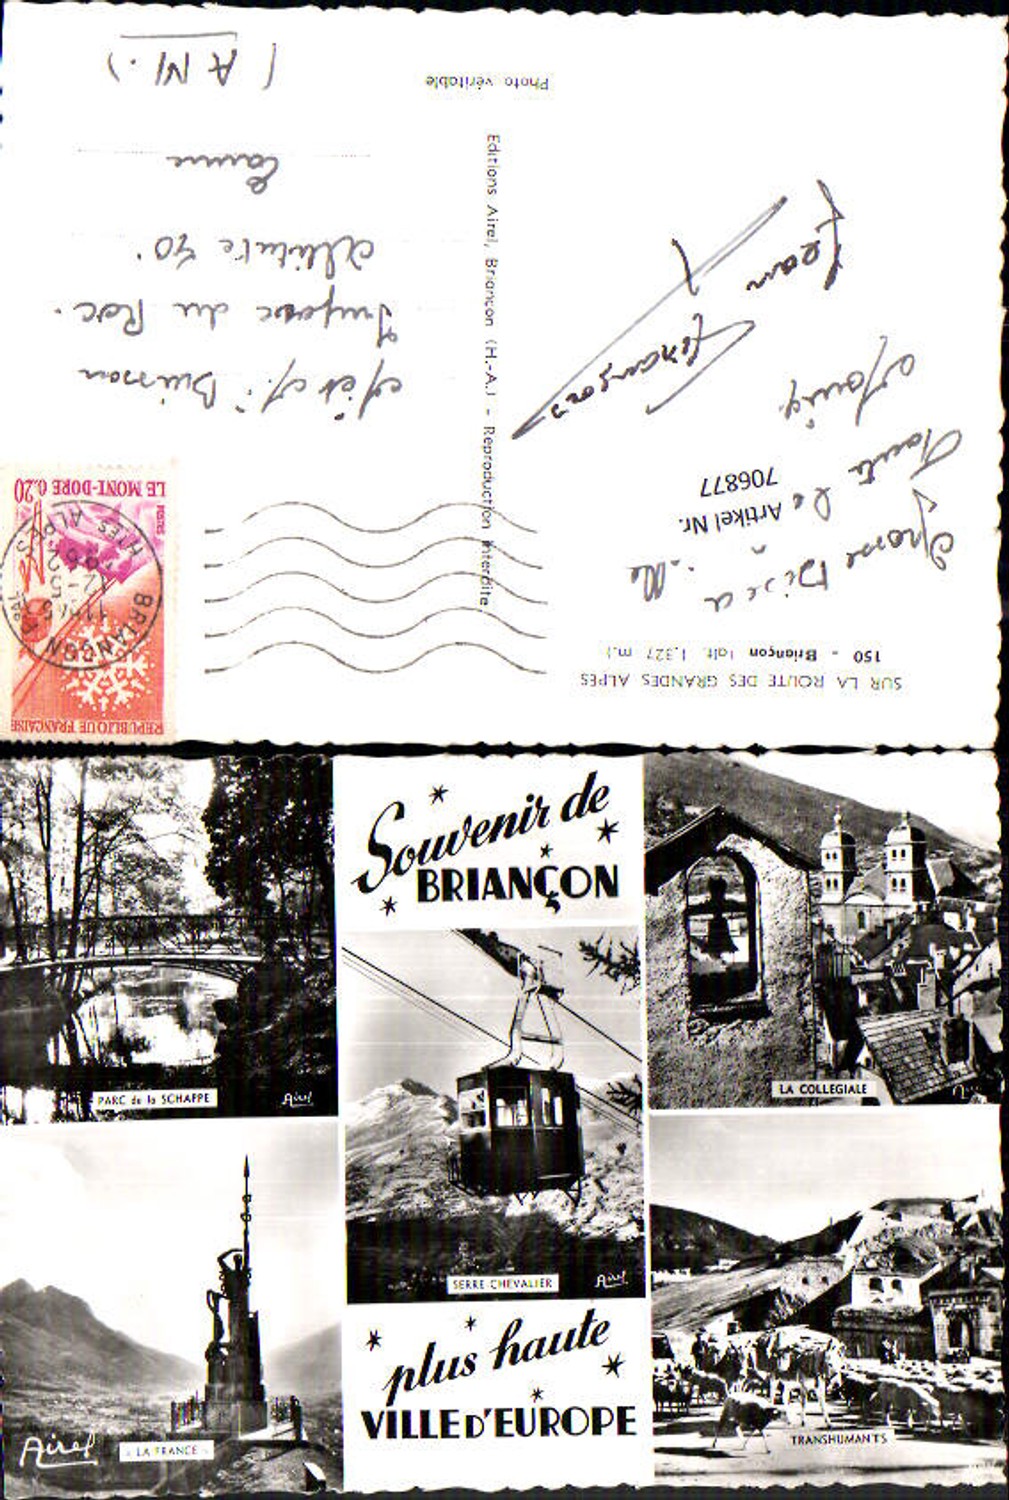 SUR LA ROUTE DES GRANDES ALPES
150 - Briançon (alt. 1.327 m.)
Artikel Nr.
706877
Jean
François
Editions Airel, Briançon (H.-A.) - Reproduction interdite
Photo véritable
REPUBLIQUE FRANÇAISE
POSTES
LE MONT-DORE 0.20
BRIANÇON
HTES ALPES
Buisson
Impasse du Roc.
Altitude 70
Canne
(A M.)
Souvenir de
BRIANÇON
PARC de la SCHAPPE
Airel
LA COLLEGIALE
SERRE-CHEVALIER
Airel
plus haute
VILLE D'EUROPE
Airel
"LA FRANCE"
TRANSHUMANTS